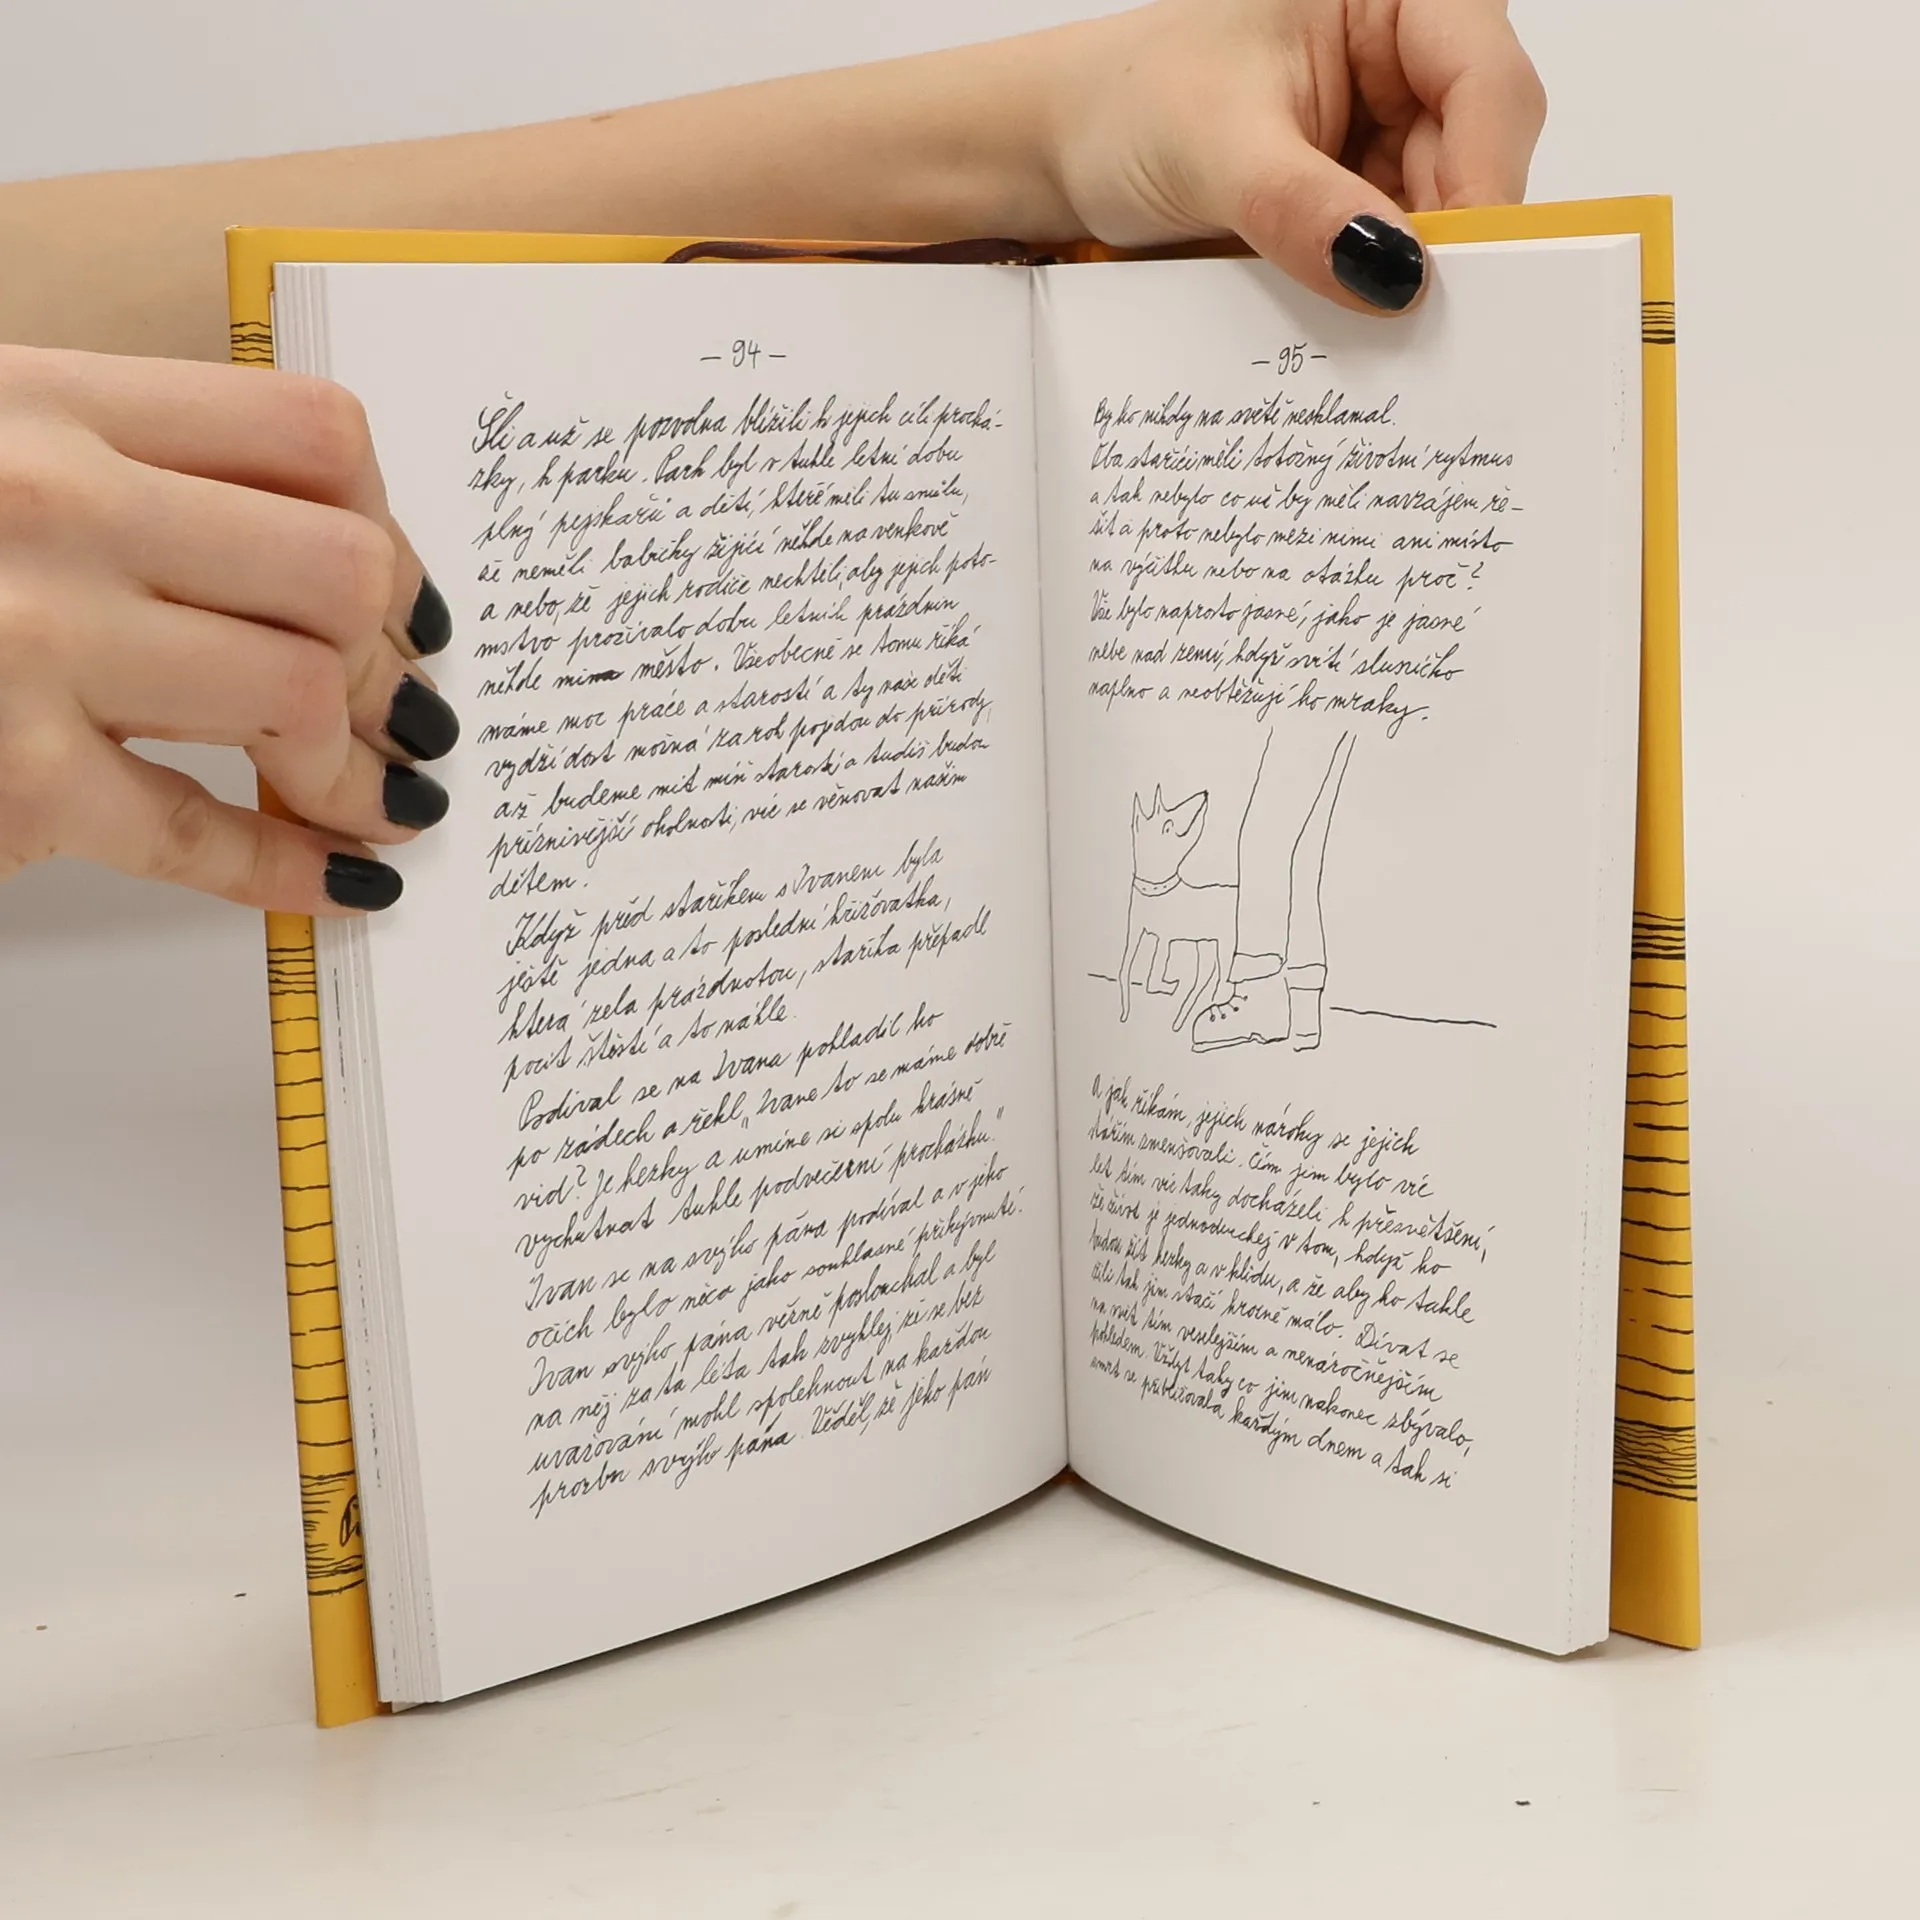 — 94 —
Šli a už se pozvolna blížili k jejich cíli prochá-
zky, k parku. Park byl v tuhle letní dobu
plný pejskařů a dětí, které měli tu smůlu,
že neměli babičky žijící někde na venkově
a nebo, že jejich rodiče nechtěli, aby jejich poto-
mstvo prožívalo dobu letních prázdnin
někde mimo město. Všeobecně se tomu říká
máme moc práce a starostí a ty naše děti
vydží dost možná za rok pojedou do přírody,
až budeme mít míň starostí a tudíš budou
příznivější okolnosti, víc se věnovat našim
dětem.
Když před staříkem s Ivanem byla
ještě jedna a to poslední křižovatka,
která zela prázdnotou, staříka přepadl
pocit štěstí a to náhle.
Podíval se na Ivana pohladil ho
po zádech a řekl „Ivane to se máme dobře
viď? Je hezky a umíme si spolu krásně
vychutnat tuhle podvečerní procházku."
Ivan se na svýho pána podíval a v jeho
očích bylo něco jako souhlasné přikývnutí.
Ivan svýho pána věrně poslouchal a byl
na něj za ta léta tak zvyklej, že se bez
uvažování mohl spolehnout na každou
prozbu svýho pána. Věděl, že jeho pán
— 95 —
By ho nikdy na světě nesklamal.
Oba staříci měli totožný životní rytmus
a tak nebylo co už by měli navzájem ře-
šit a proto nebylo mezi nimi ani místo
na výčitku nebo na otázku proč?
Vše bylo naprosto jasné, jako je jasné
nebe nad zemí, když svítí sluníčko
naplno a neobtěžují ho mraky.
A jak říkám, jejich nároky se jejich
stářím zmenšovali. Čím jim bylo víc
let tím víc taky docházeli k přesvětšení,
že život je jednoduchej v tom, když ho
budou žít hezky a v klidu, a že aby ho takle
žili tak jim stačí hrozně málo. Dívat se
na svět tím veselejším a nenáročnějším
pohledem. Vždyť taky co jim nakonec zbývalo,
smrt se přibližovala každým dnem a tak si